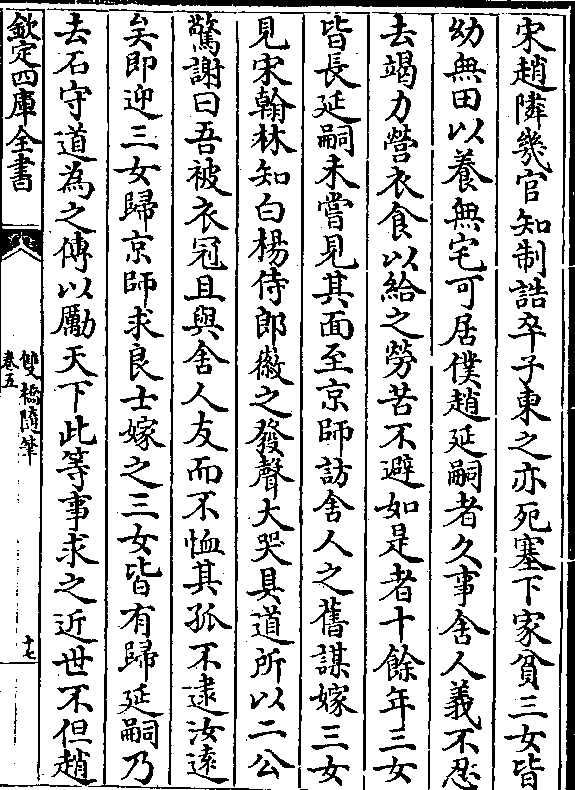 宋趙隣㡬官知制誥卒子東之亦死塞下家貧三女皆
幼無田以養無宅可居僕趙延嗣者久事舍人義不忍
去竭力營衣食以給之勞苦不避如是者十餘年三女
皆長延嗣未嘗見其面至京師訪舍人之舊謀嫁三女
見宋翰林知白楊侍郎徽之發聲大哭具道所以二公
驚謝曰吾被衣冠且與舍人友而不恤其孤不逮汝逺
矣即迎三女歸京師求良士嫁之三女皆有歸延嗣乃
去石守道為之傳以勵天下此等事求之近世不但趙
欽定四庫全書
雙橋隨筆
卷五
十七